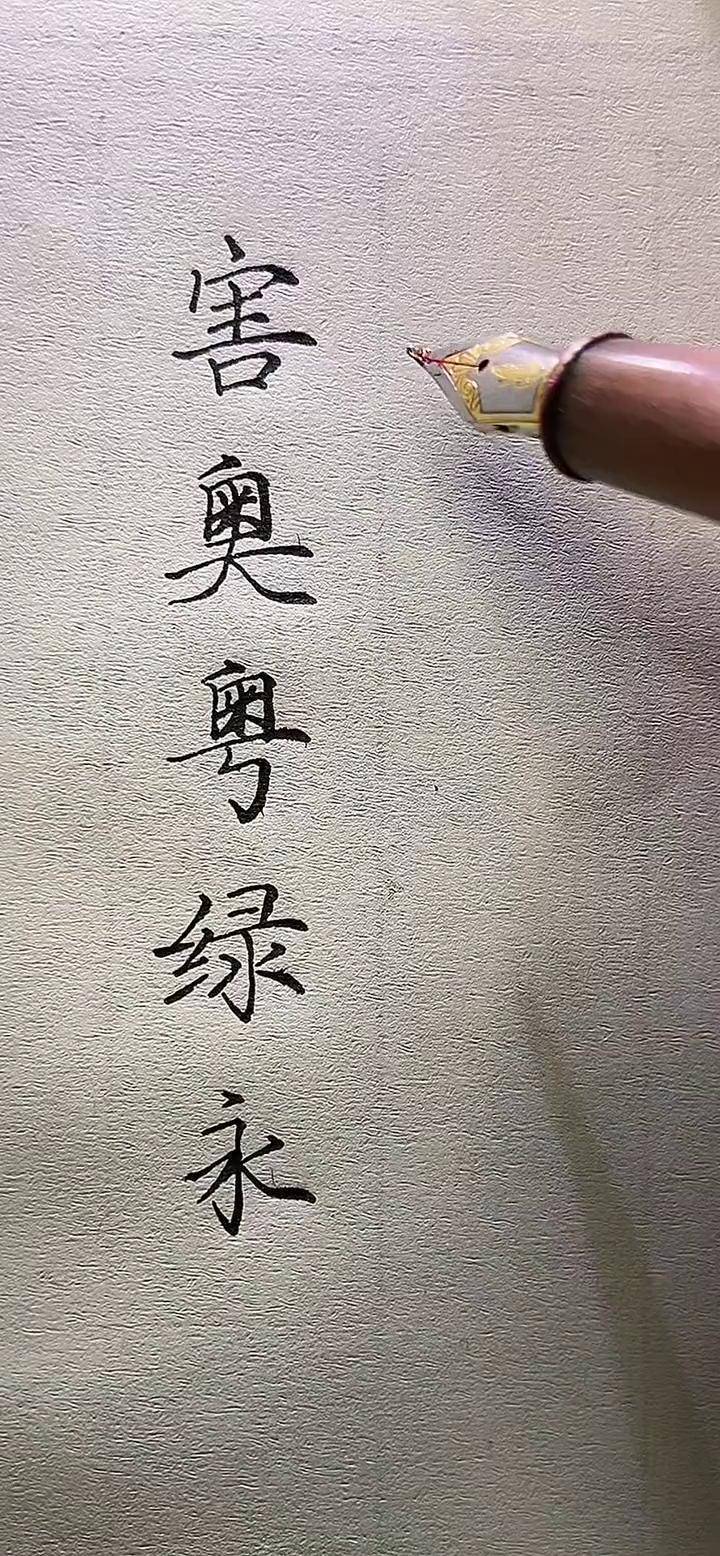 害奥粤绿永